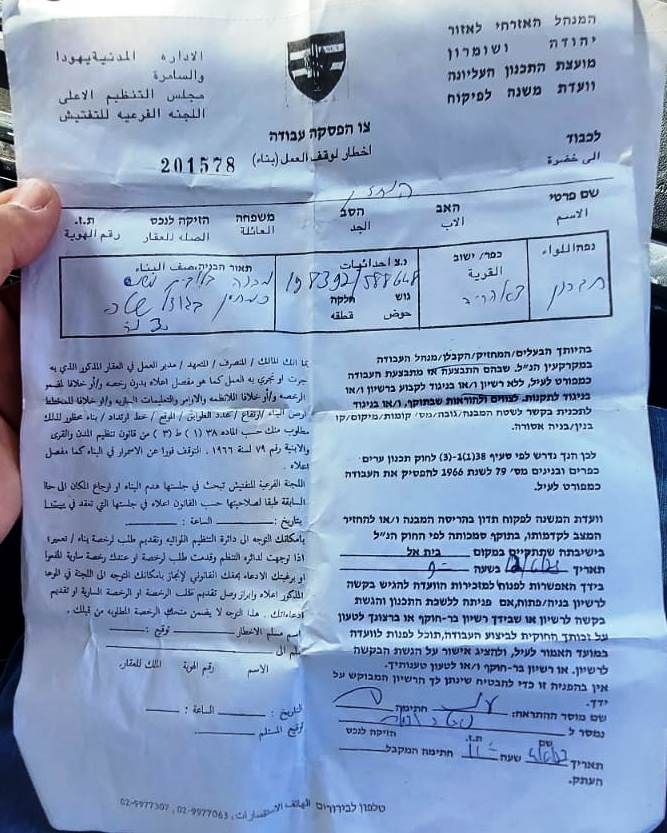 המנהל האזרחי לאזור
יהודה ושומרון
מועצת התכנון העליונה
וועדת משנה לפיקוח
الاداره المدنية يهودا
والسامرة
مجلس التنظيم الاعلى
اللجنه الفرعيه للتفتيش
צו הפסקה עבודה
اخطار لوقف العمل (بناء)
201578
לכבוד
الى حضرة
שם פרטי האב הסב משפחה הזיקה לנכס ת.ז.
الاسم الاب الجد العائلة الصله للعقار رقم الهوية
נפה/ללואء
חברון
כפר/ ישוב
القرية
נ.צ/احداثيات
גוש חלקה
حوض قطقه
תאור הבניה/صف البناء
בהיותך הבעלים/המחזיק/הקבלן/מנהל העבודה
במקרקעין הנ"ל. שבהם התבצעה או מתבצעת העבודה
כמפורט לעיל, ללא רשיון ו/או בניגוד לקבוע ברשיון ו/או
בניגוד לתקנות. לצווים ולהוראות שבחוק, ו/או בניגוד
לתכנית בקשר לשטח המבנה/גובה/מס' קומות/מיקום/קו
בנין/בניה אסורה.
לכן הנך נדרש לפי סעיף 38(1)(1-3) לחוק תכנון ערים
כפרים ובנינים מס' 79 לשנת 1966 להפסיק את העבודה
כמפורט לעיל.
וועדת המשנה לפקוח תדון בהריסת המבנה ו/או להחזיר
המצב לקדמותו, בתוקף סמכותה לפי החוק הנ"ל
בישיבתה שתתקיים במקום בית אל
תאריך בשעה
בידך האפשרות לפנות למזכירות הוועדה להגיש בקשה
לרשיון בניה/פתוח, אם פניתה ללשכת התכנון והגשת
בקשה לרשיון או שבידך רשיון בר-חוקף או ברצונך לטעון
על זכותך החוקית לביצוע העבודה, תוכל לפנות לוועדה
במועד האמור לעיל, ולהציג אישור על הגשת הבקשה
לרשיון. או רשיון בר-חוקף ו/או לטעון טענותיך.
אין בהפניה זו כדי להבטיח שינתן לך הרשיון המבוקש על
ידך.
שם מוסר ההתראה: חתימה
נמסר ל
שם ת.ז. הזיקה לנכס
תאריך שעה חתימה המקבל
העתק.
بما انك المالك / المتصرف / المتعهد / مدير العمل في العقار المذكور الذي به
جرت او تجري به العمل كما هو مفصل اعلاه بدون رخصه و/أو خلافا لمضمو
الرخصه و/أو خلافا للانظمه والاوامر والتعليمات الساريه و/أو خلافا للمخطط
ارض البناء /ارتفاع / عدد الطوابق / الموقع / خط ارتداد / بناء محظور لذلك
مطلوب منك حسب الماده ٣٨ (١) ط (٣) من قانون تنظيم المدن والقرى
والابنية رقم ٧٩ لسنة ١٩٦٦. التوقف فورا عن الاستمرار في البناء كما مفصل
اعلاه .
اللجنة الفرعية للتفتيش تبحث في جلستها هدم البناء او ارجاع المكان الى حالته
السابقة طبقا لصلاحيتها حسب القانون اعلاه في جلستها التي تعقد في
بتاريخ : الساعة :
بامكانك التوجه الى دائرة التنظيم اللوائيه وتقديم طلب لرخصة بناء / تعمير؛
اذا توجهت لدائره التنظم وقدمت طلب لرخصة او عندك رخصة سارية المفعول
او برغبتك الادعاء بحقك القانوني لإنجاز بامكانك التوجه الى اللجنة في الموعد
المذكور اعلاه وابراز وصل تقديم طلب الرخصة او الرخصة السارية او تقديم
ادعاءاتك . هذا التوجه لا يضمن منحك الرخصة المطلوبه من قبلك .
اسم مسلم الاخطار توقيع :
سلم الى
الاسم رقم الهوية الملك للعقار.
التاريخ : الساعة :
توقيع المستلم :
טלפון לבירורים الهاتف الاستفسارات: 02-9977063 ,02-9977307